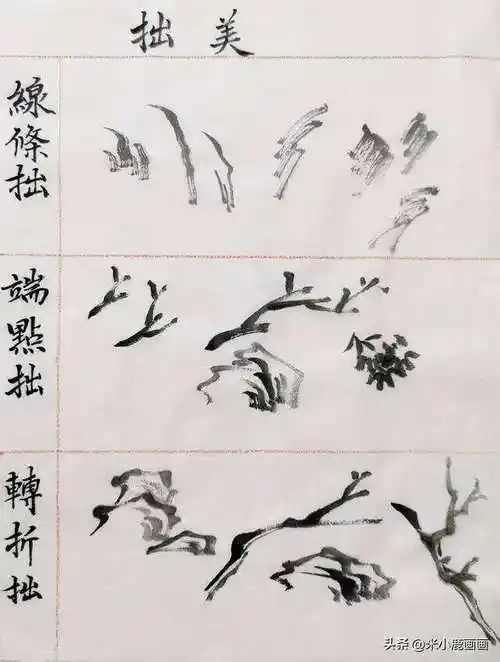 拙美
線條拙
端點拙
轉折拙
头条 @米小鹿画画